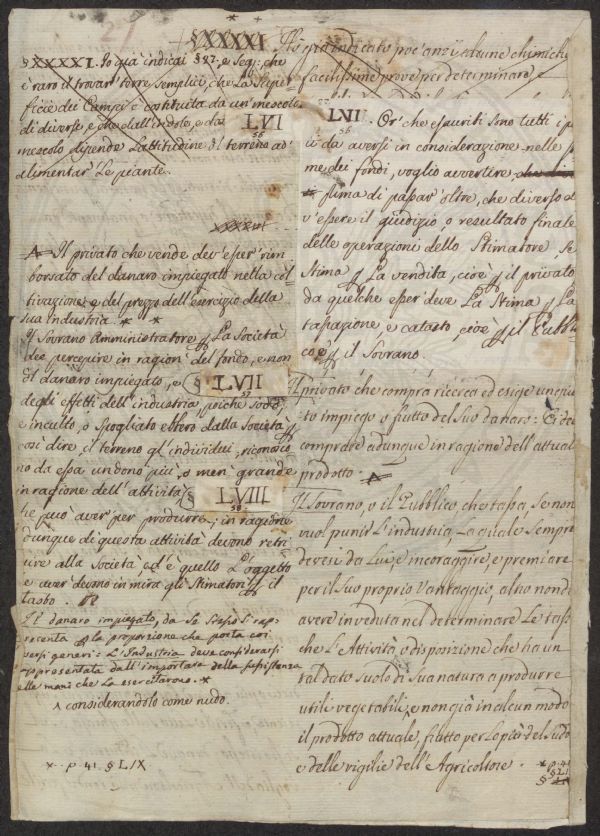 27
§XXXXI
§XXXXI. Io già indicai § 27. e Seg: che
è raro il trovar terre semplici, che La Super
ficie dei Campi è costituita da un mescolo
di diverse, e che dall'indole, e da
LVI
56
mescolo dipende L'attitudine di terreno ad
alimentar Le piante.
XXXXVI
A Il privato che vende dev'esser rim
borsato del danaro impiegato nella col
tivazione, e del prezzo dell'esercizio della
sua industria.
Il Sovrano Amministratore La Società
dee percepire in ragion del fondo, e non
di danaro impiegato, e
§ LVII
57
degli effetti dell'industria, poichè sodo
e inculto, o Spogliato ebbero dalla Società
così dire, il terreno gl'individui, riconosco
no da essa un dono più, o men grande
in ragione dell'attività
§ LVIII
58
che può aver per produrre; in ragione
dunque di questa attività devono retri
uire alla Società ed è quello L'oggetto
e aver devono in mira gli Stimatori il
tasto.
Il danaro impiegato, da Se Stesso si rap
presenta, la proporzione che porta coi
versi generi: L'Industria deve considerarsi
rappresentata dall'importare della sussistenza
elle mani che La esercitarono. *
^ considerandolo come nudo.
x. p. 41. § LIX
Ho già indicato poc'anzi alcune chimiche
facilissime prove per determinare
LVII
56
. Or' che esauriti sono tutti i p
ti da aversi in considerazione nelle
me dei fondi, voglio avvertire
prima di passar oltre, che diverso
v'essere il giudizio, o resultato finale
delle operazioni dello Stimatore, Se
Stima La vendita, cioè il privato
da quelche esser deve La Stima La
tassazione, e catasto, cioè il Pubbli
co, e il Sovrano.
Il privato che compra ricerca ed esige un qui
to impiego o frutto del Suo danaro: Ei de
comprare adunque in ragione dell'attual
prodotto.
Il Sovrano, o il Pubblico, che tassa, Se non
vuol punir L'industria, La quale Sempre
devesi da Lui, e incoraggire, e premiare
per il Suo proprio Vantaggio, altro non de
avere in veduta nel determinare Le tasse
che L'Attività, o disposizione che ha un
tal dato Suolo di Sua natura a produrre
utili vegetabili, e non già in alcun modo
il prodotto attuale, frutto per Lo più del Sudo
e delle vigilie dell'Agricoltore.
* p. 41
§ LI